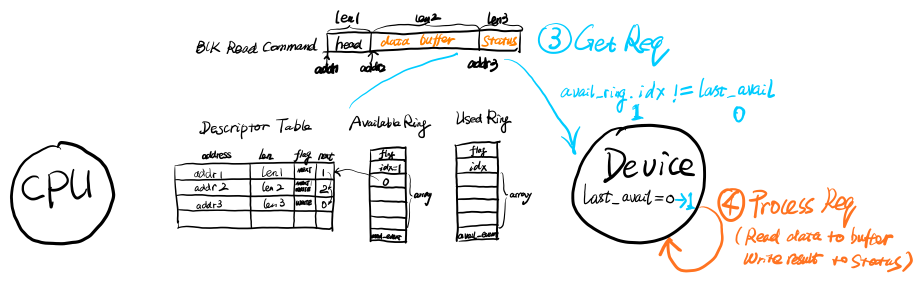 len1 len2 len3
BLK Read Command head data buffer Status
addr1 addr2 addr3
③ Get Req
avail_ring.idx != last_avail
1 0
Descriptor Table
address len flag next
addr1 len1 NEXT 1
addr2 len2 NEXT WRITE 2
addr3 len3 WRITE 0
Available Ring
flag
idx=1
0
array
used_event
Used Ring
flag
idx
array
avail_event
CPU
Device
last_avail=0→1
④ Process Req
(Read data to buffer
Write result to Status)